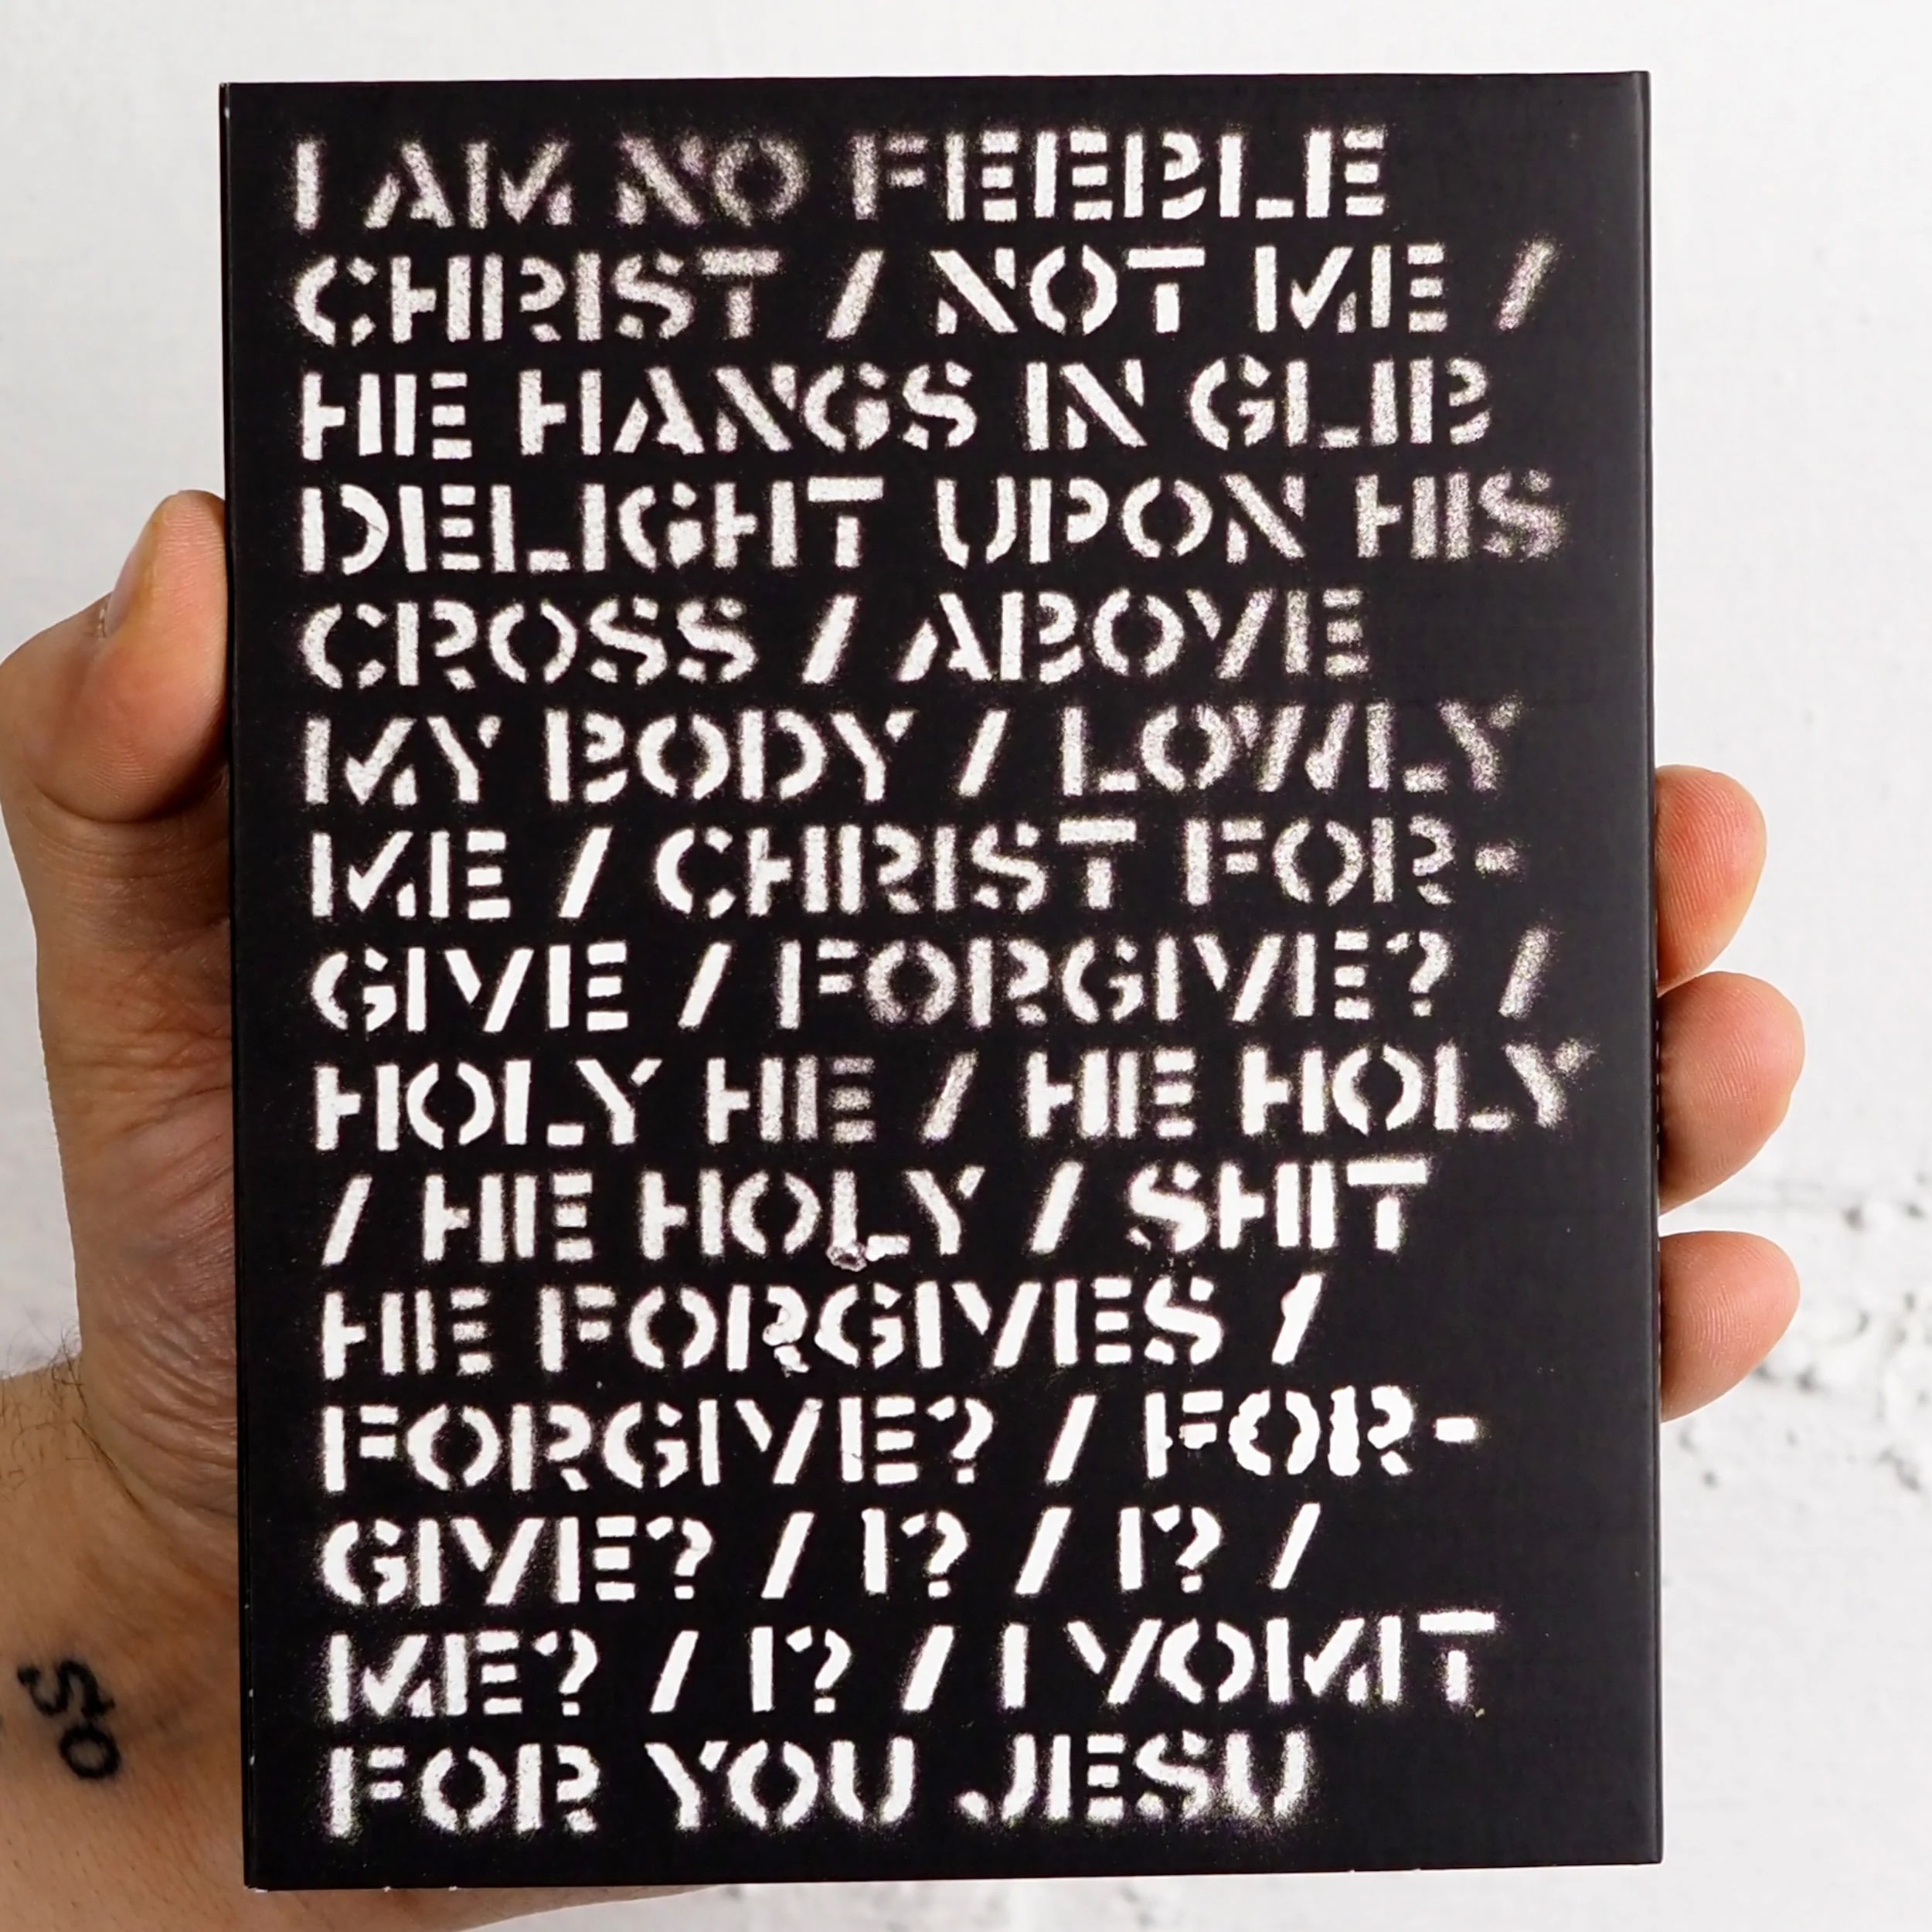 I AM NO FEEBLE
CHRIST / NOT ME /
HE HANGS IN GLIB
DELIGHT UPON HIS
CROSS / ABOVE
MY BODY / LOWLY
ME / CHRIST FOR-
GIVE / FORGIVE? /
HOLY HE / HE HOLY
/ HE HOLY / SHIT
HE FORGIVES /
FORGIVE? / FOR-
GIVE? / I? / I? /
ME? / I? / I VOMIT
FOR YOU JESU
So